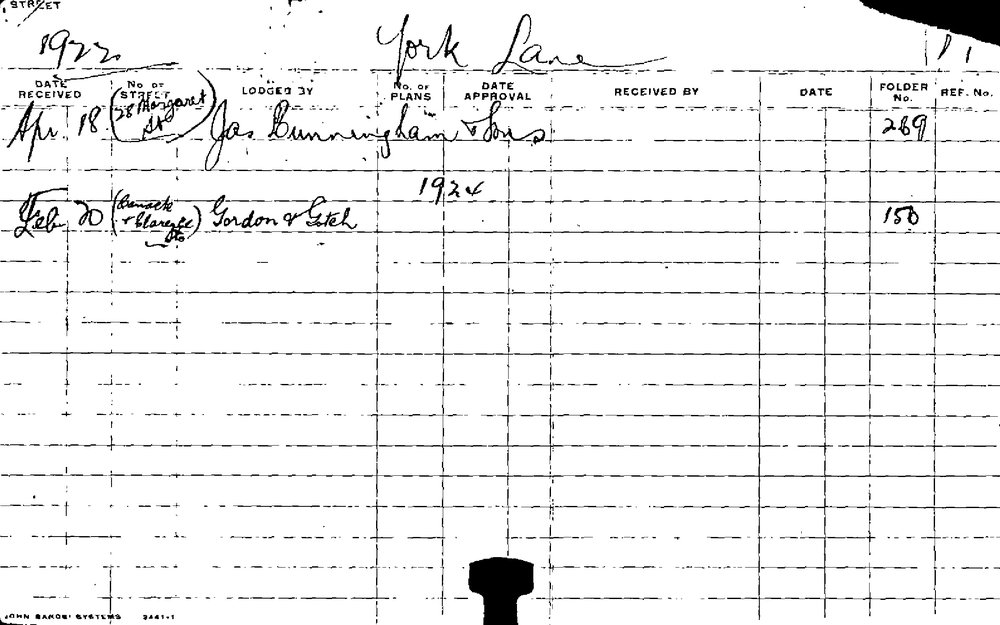 STREET
1922 York Lane 1
DATE RECEIVED No OF STREET LODGED BY No. OF PLANS DATE APPROVAL RECEIVED BY DATE FOLDER No. REF. No.
Apr. 18 (28 Margaret St) Jas Cunningham & Sons 269
1924
Feb 20 (Barrack & Clarence Sts) Gordon & Gotch 150
JOHN SANDS SYSTEMS